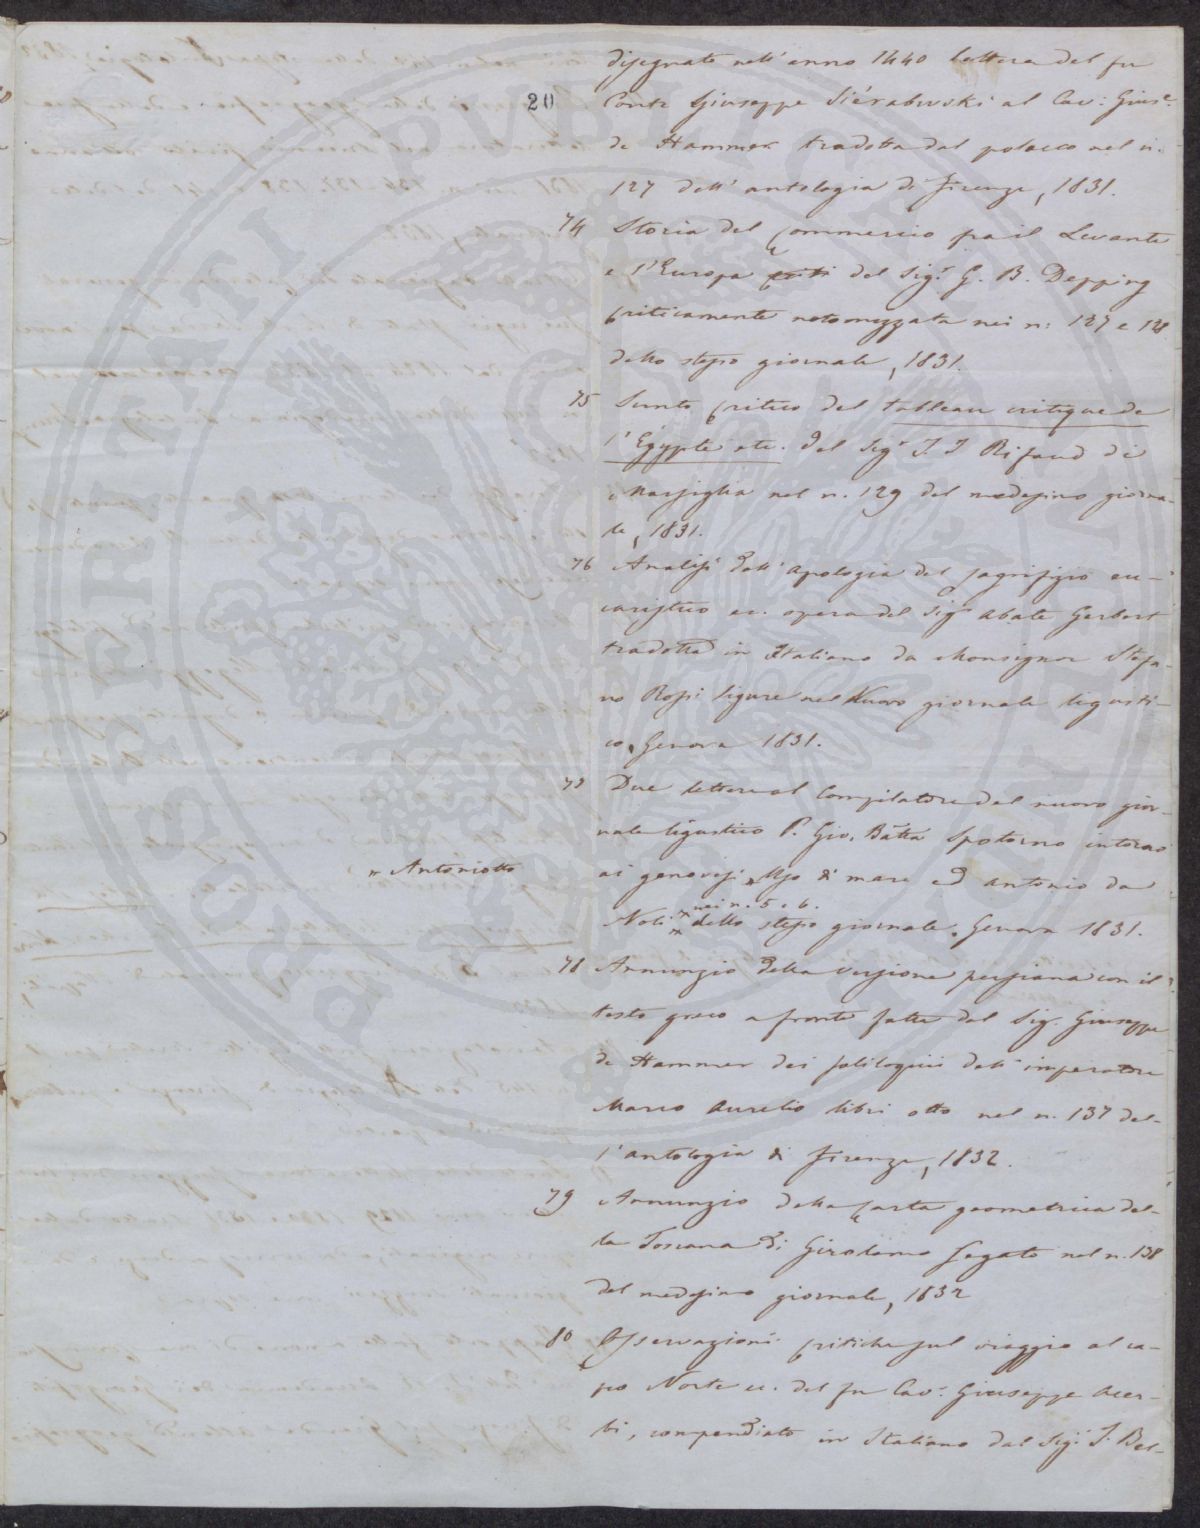 disegnato nell' anno 1440 lettera del fu
20
Conte Giuseppe Siérakowski al Cav: Gius.e
de Hammer tradotta dal polacco nel n.
127 dell' antologia di firenze, 1831.
74 Storia del Commercio fra il Levante
e l'Europa del Sig.r G. B. Depping
criticamente notomizzata nei n: 127 e 128
dello stesso giornale, 1831.
75 Sunto critico del tableau critique de
l'Égypte etc. del Sig.r J. J Rifaud di
Marsiglia nel n. 129 del medesimo giorna-
le, 1831.
76 Analisi dell' apologia del sagrifizio eu-
caristico ec. opera del Sig.r abate Gerbert
tradotta in Italiano da Monsignor Stefa-
no Rossi ligure nel Nuovo giornale ligusti-
co, Genova 1831.
77 Due lettere al Compilatore del nuovo gior-
nale ligustico P. Gio. Batta Spotorno intorno
" Antoniotto
ai genovesi Uso di mare ed antonio da
nei n. 5 e 6.
Noli dello stesso giornale. Genova 1831.
78 Annunzio della versione persiana con il
testo greco a fronte fatta dal Sig. Giuseppe
de Hammer dei soliloquii dell' imperatore
Marco Aurelio libri otto nel n. 137 del-
l'antologia di firenze, 1832.
79 Annunzio della carta geometrica del-
la Toscana di Girolamo Segato nel n. 138
del medesimo giornale, 1832
80 Osservazioni critiche sul viaggio al ca-
po Norte ec. del fu Cav. Giuseppe Acer-
bi, compendiato in Italiano dal Sig. J. Bel-
PROSPERITATI PUBLICAE